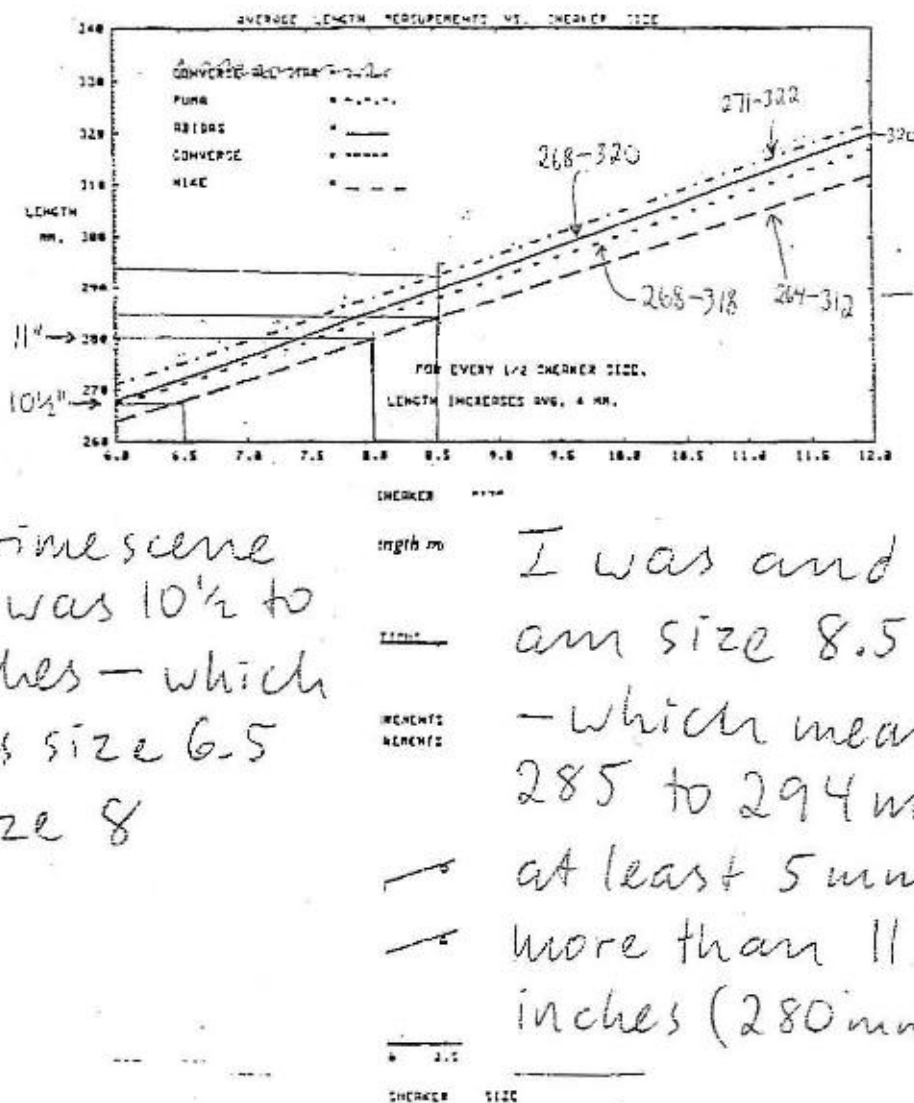 AVERAGE LENGTH MEASUREMENTS VS. SNEAKER SIZE
340
330
320
310
300
290
280
270
260
LENGTH
MM.
CONVERSE ALL STAR
PUMA
ADIDAS
CONVERSE
NIKE
271-322
268-320
320
268-318
264-312
11"
10½"
FOR EVERY 1/2 SNEAKER SIZE,
LENGTH INCREASES AVG. 4 MM.
6.0 6.5 7.0 7.5 8.0 8.5 9.0 9.5 10.0 10.5 11.0 11.5 12.0
SNEAKER
imescene
was 10½ to
hes — which
s size 6.5
ze 8
ngth m
EMENTS
REMENTS
I was and
am size 8.5
— which mean
285 to 294 m
at least 5 mm
more than 11
inches (280 mm
SNEAKER SIZE